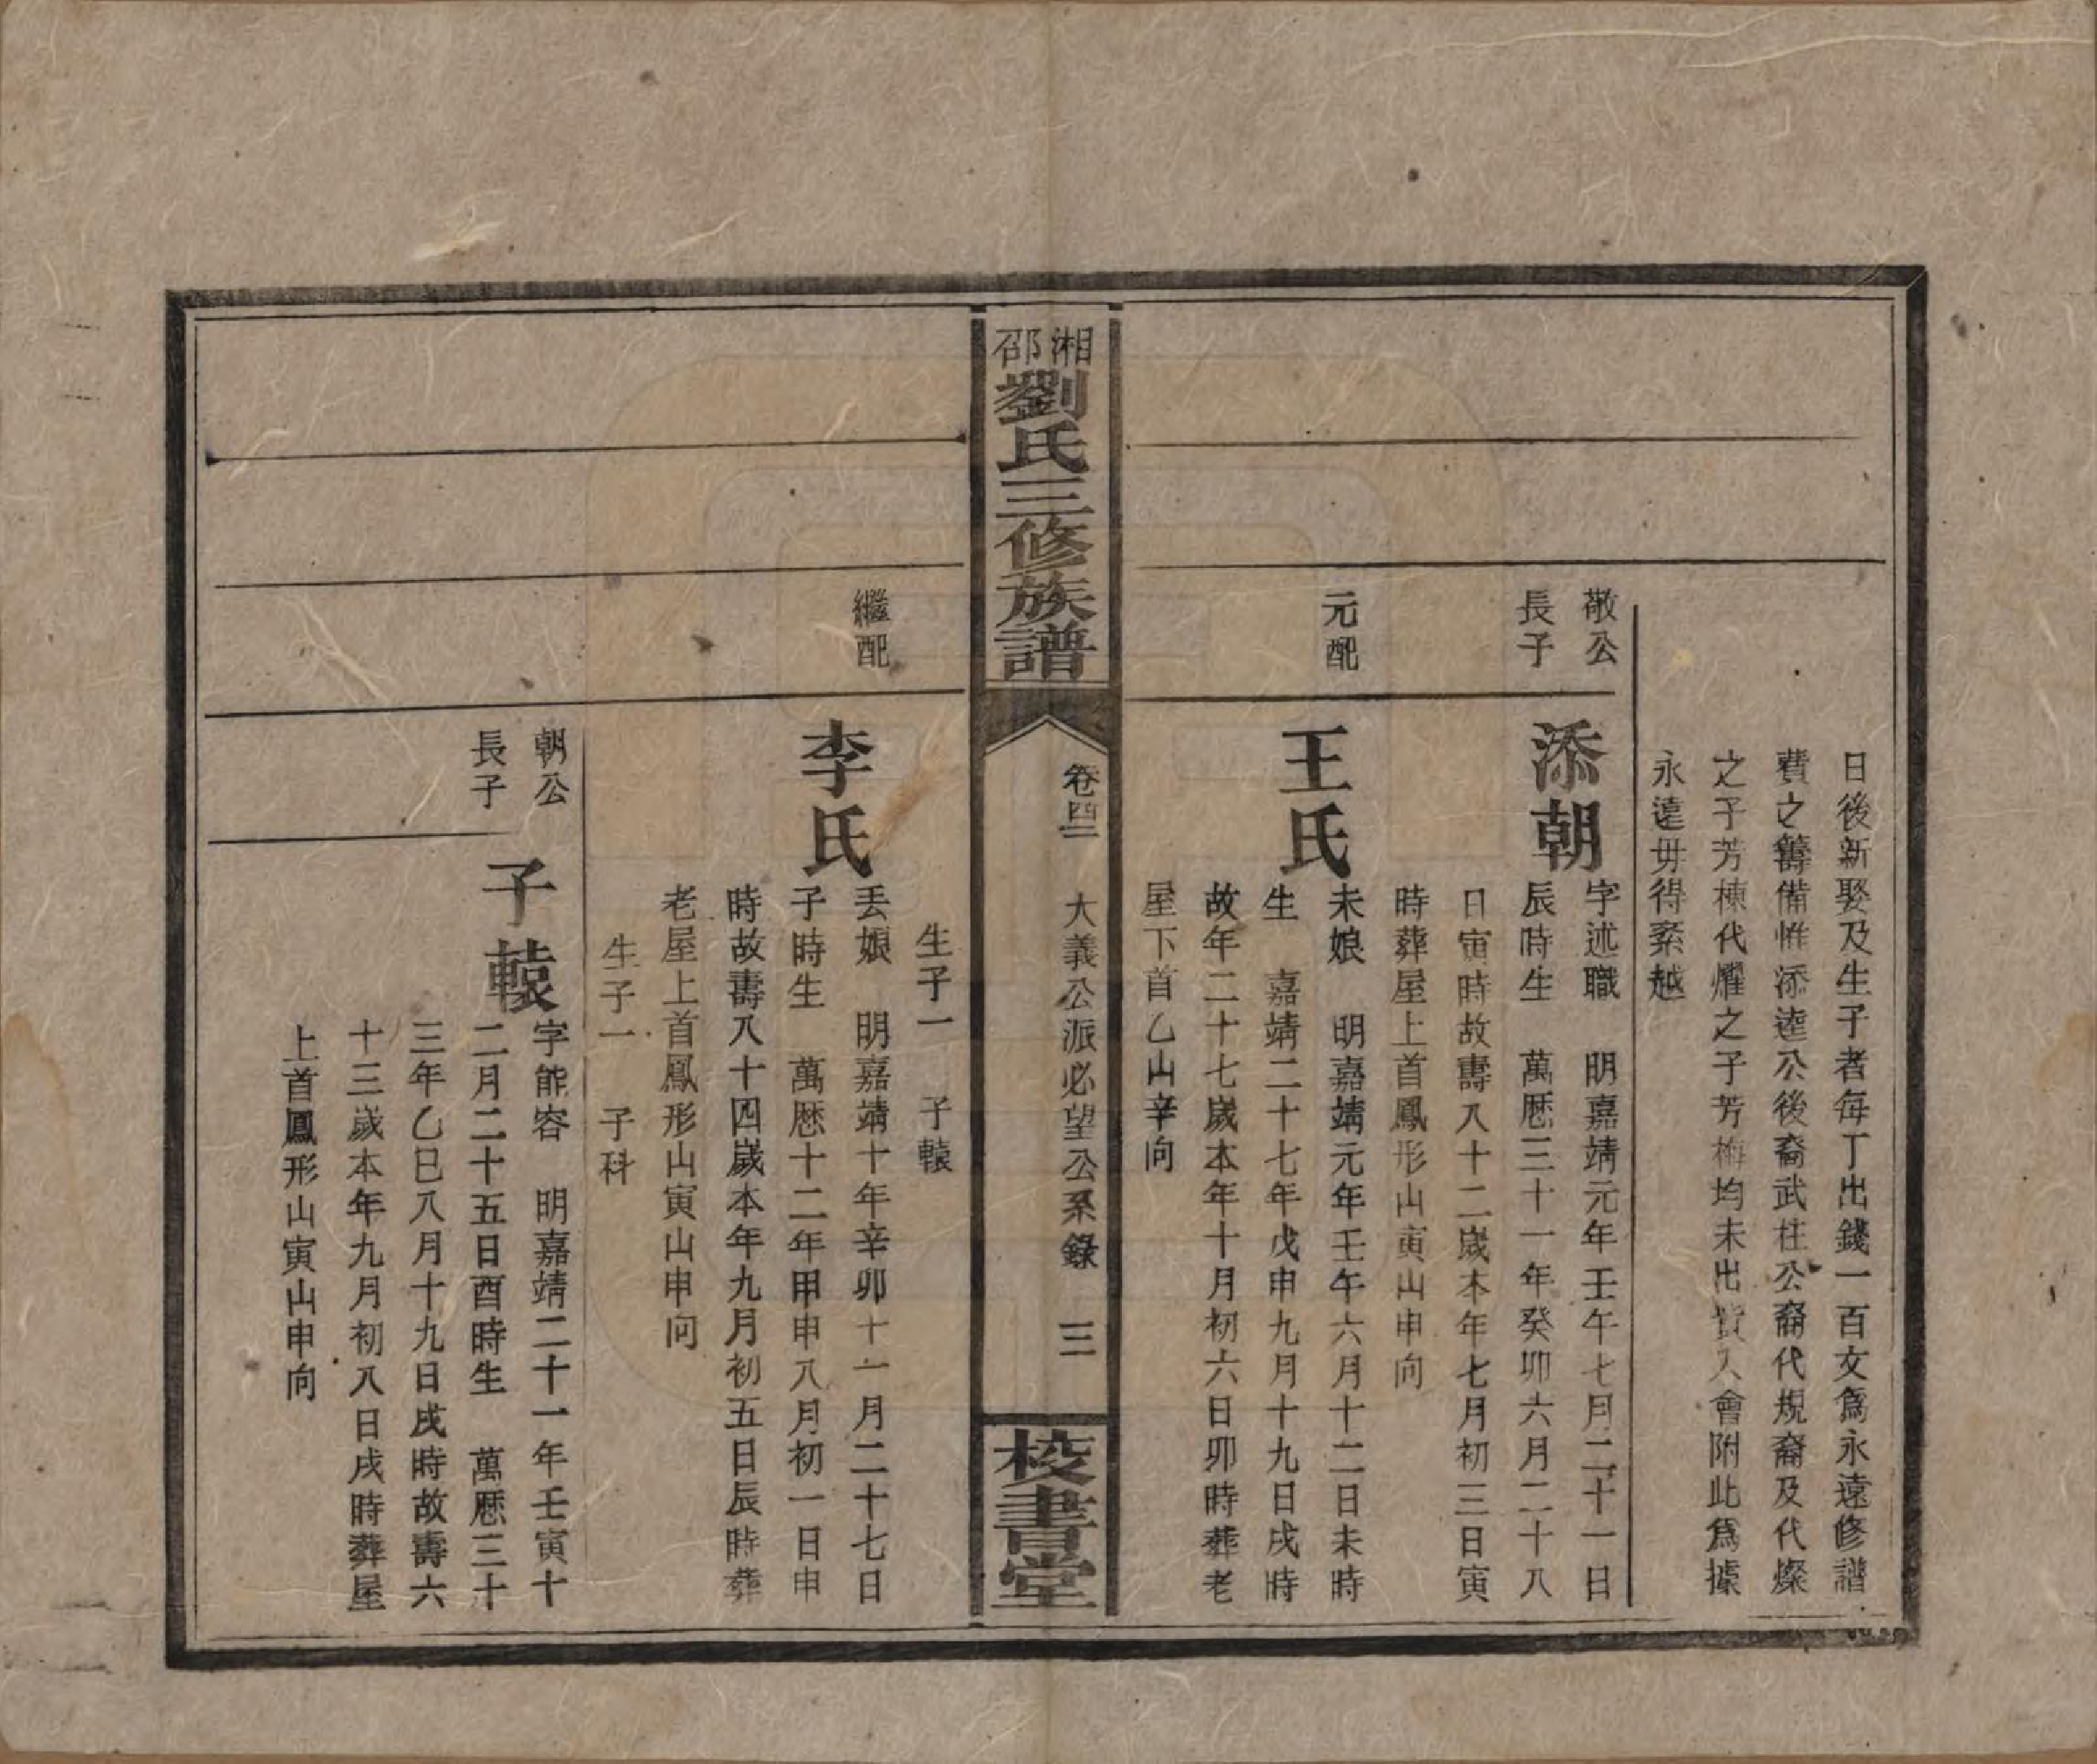 日後新娶及生子者每丁出錢一百文爲永遠修譜
費之籌備惟添逵公後裔武柱公裔代規裔及代燦
之子芳棟代燿之子芳梅均未出貲入會附此爲據
永遠毋得紊越
敬公
長子
添朝
字述職 明嘉靖元年壬午七月二十一日
辰時生 萬厯三十一年癸卯六月二十八
日寅時故壽八十二歲本年七月初三日寅
時葬屋上首鳳形山寅山申向
元配
王氏
未娘 明嘉靖元年壬午六月十二日未時
生 嘉靖二十七年戊申九月十九日戌時
故年二十七歲本年十月初六日卯時葬老
屋下首乙山辛向
湘邵劉氏三修族譜
卷四二 大義公派必望公系錄 三
校書堂
生子一 子轅
繼配
李氏
丢娘 明嘉靖十年辛卯十一月二十七日
子時生 萬厯十二年甲申八月初一日申
時故壽八十四歲本年九月初五日辰時葬
老屋上首鳳形山寅山申向
生子一 子科
朝公
長子
子轅
字能容 明嘉靖二十一年壬寅十
二月二十五日酉時生 萬厯三十
三年乙巳八月十九日戌時故壽六
十三歲本年九月初八日戌時葬屋
上首鳳形山寅山申向